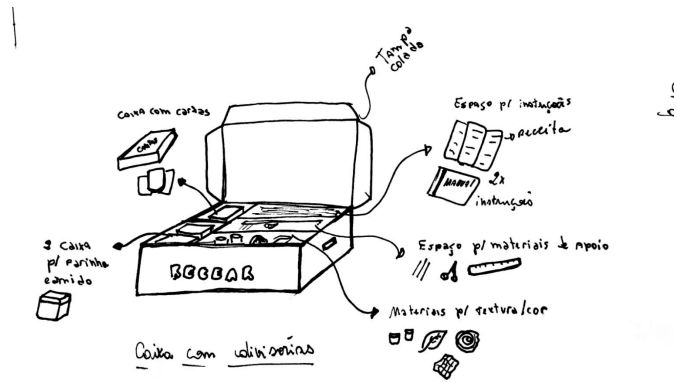 Tampa
colado
Caixa com cartas
CARTAS
Espaço p/ instruções
receita
MANUAL
2x
instruções
2 Caixa
p/ farinha
e amido
Espaço p/ materiais de apoio
Materiais p/ textura/cor
Caixa com divisórias